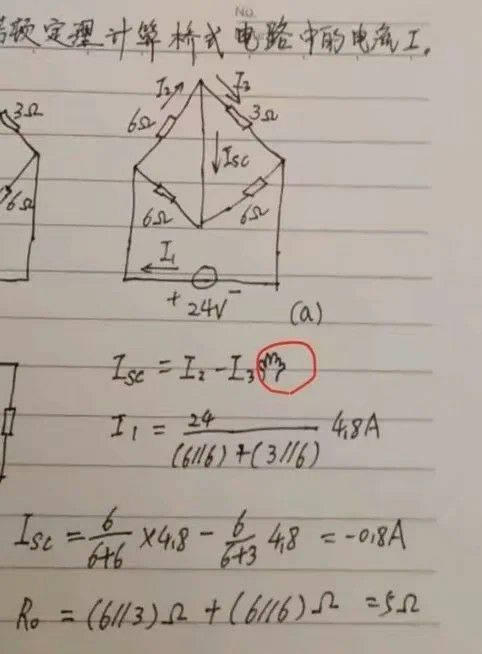 No.
顿定理计算桥式电路中的电流I。
I₂ I₃
3Ω 6Ω 3Ω
Isc
6Ω 6Ω 6Ω
I₁
+ 24V - (a)
Isc = I₂ - I₃
I₁ = 24 / (6//6)+(3//6) 4.8A
Isc = 6/6+6 ×4.8 - 6/6+3 4.8 = -0.8A
R₀ = (6//3)Ω + (6//6)Ω = 5Ω